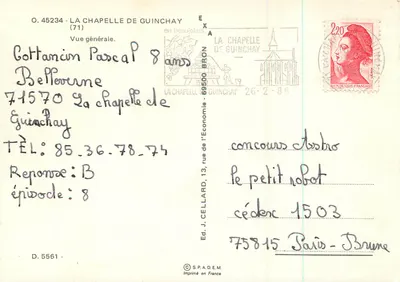 O. 45234 - LA CHAPELLE DE GUINCHAY
(71)
Vue générale.
Cottancin Pascal 8 ans
Bellevorne
71570 La chapelle de
Guinchay
TÈL: 85-36-78-74
Reponse: B
épisode: 8
D. 5561 -
EXA
Ed. J. CELLARD, 13, rue de l'Economie - 69500 BRON
© S.P.A.D.E.M.
Imprimé en France
LA CHAPELLE
DE GUINCHAY
LA CHAPELLE DE GUINCHAY
26-2
2,20
concours Astro
le petit robot
cédex 1503
75815 Paris-Brune